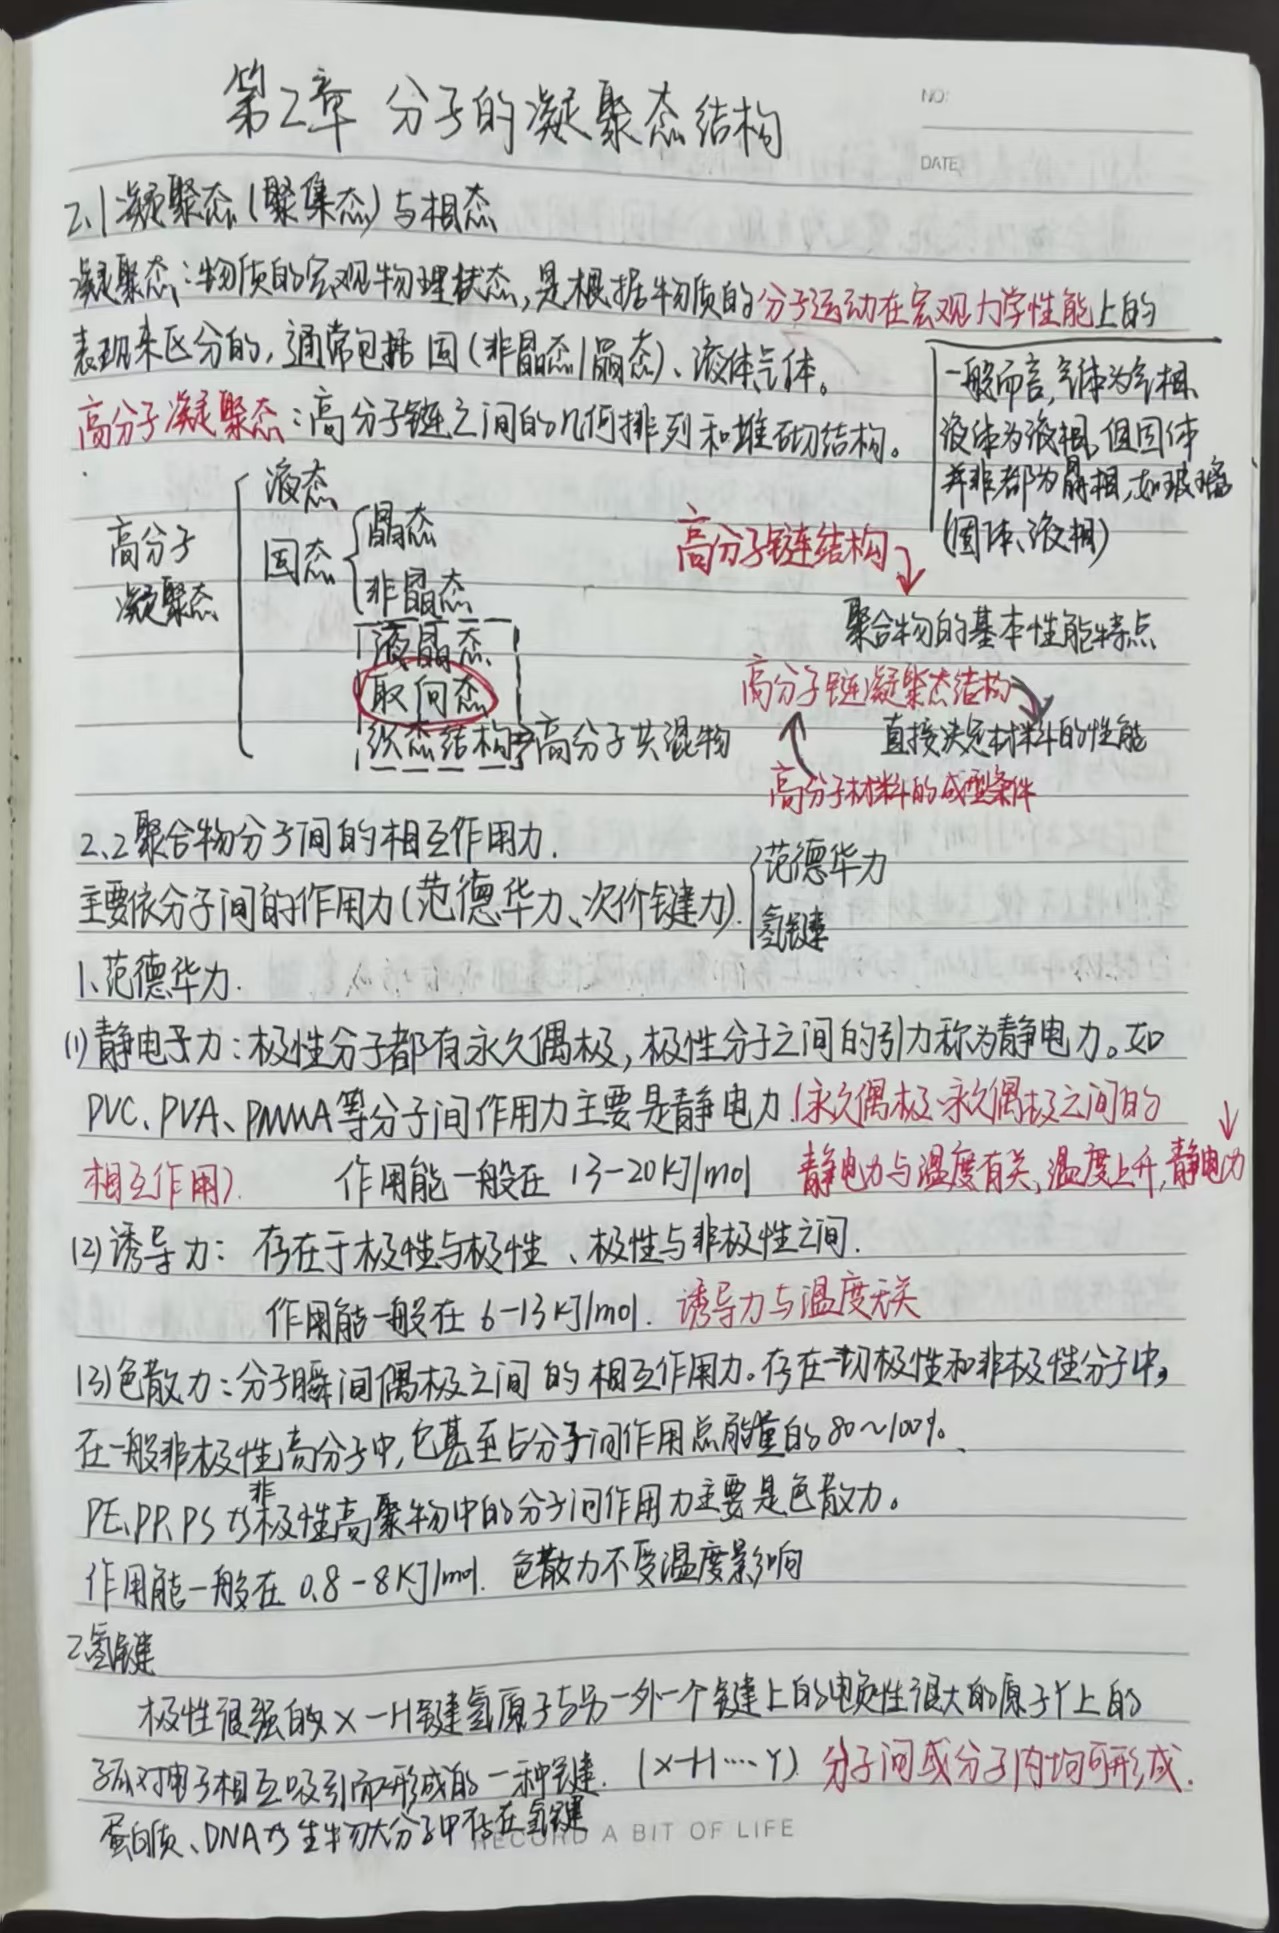 第2章 分子的凝聚态结构
NO:
DATE
2.1 凝聚态(聚集态)与相态
凝聚态:物质的宏观物理状态,是根据物质的分子运动在宏观力学性能上的
表现来区分的,通常包括固(非晶态/晶态)、液体气体。
高分子凝聚态:高分子链之间的几何排列和堆砌结构。
一般而言,气体为气相
液体为液相,但固体
并非都为晶相,如玻璃
(固体、液相)
高分子
凝聚态
液态
固态
晶态
非晶态
液晶态
取向态
织态结构→高分子共混物
高分子链结构
聚合物的基本性能特点
高分子链凝聚态结构
直接决定材料的性能
高分子材料的成型条件
2.2 聚合物分子间的相互作用力.
主要依分子间的作用力(范德华力、次价键力).
范德华力
氢键
1、范德华力.
(1)静电子力:极性分子都有永久偶极,极性分子之间的引力称为静电力。如
PVC、PVA、PMMA等分子间作用力主要是静电力(永久偶极-永久偶极之间的
相互作用). 作用能一般在 13-20KJ/mol 静电力与温度有关,温度上升,静电力↓
(2)诱导力: 存在于极性与极性、极性与非极性之间.
作用能一般在 6-13KJ/mol. 诱导力与温度无关
(3)色散力:分子瞬间偶极之间的相互作用力。存在一切极性和非极性分子中,
在一般非极性高分子中,它甚至占分子间作用总能量的80~100%、
PE、PP、PS为非极性高聚物中的分子间作用力主要是色散力。
作用能一般在 0.8-8KJ/mol. 色散力不受温度影响
2.氢键
极性很强的X-H键氢原子与另一外一个键上的电负性很大的原子Y上的
孤对电子相互吸引而形成的一种键. (X-H····Y) 分子间或分子内均可形成.
蛋白质、DNA为生物大分子中存在氢键
RECORD A BIT OF LIFE